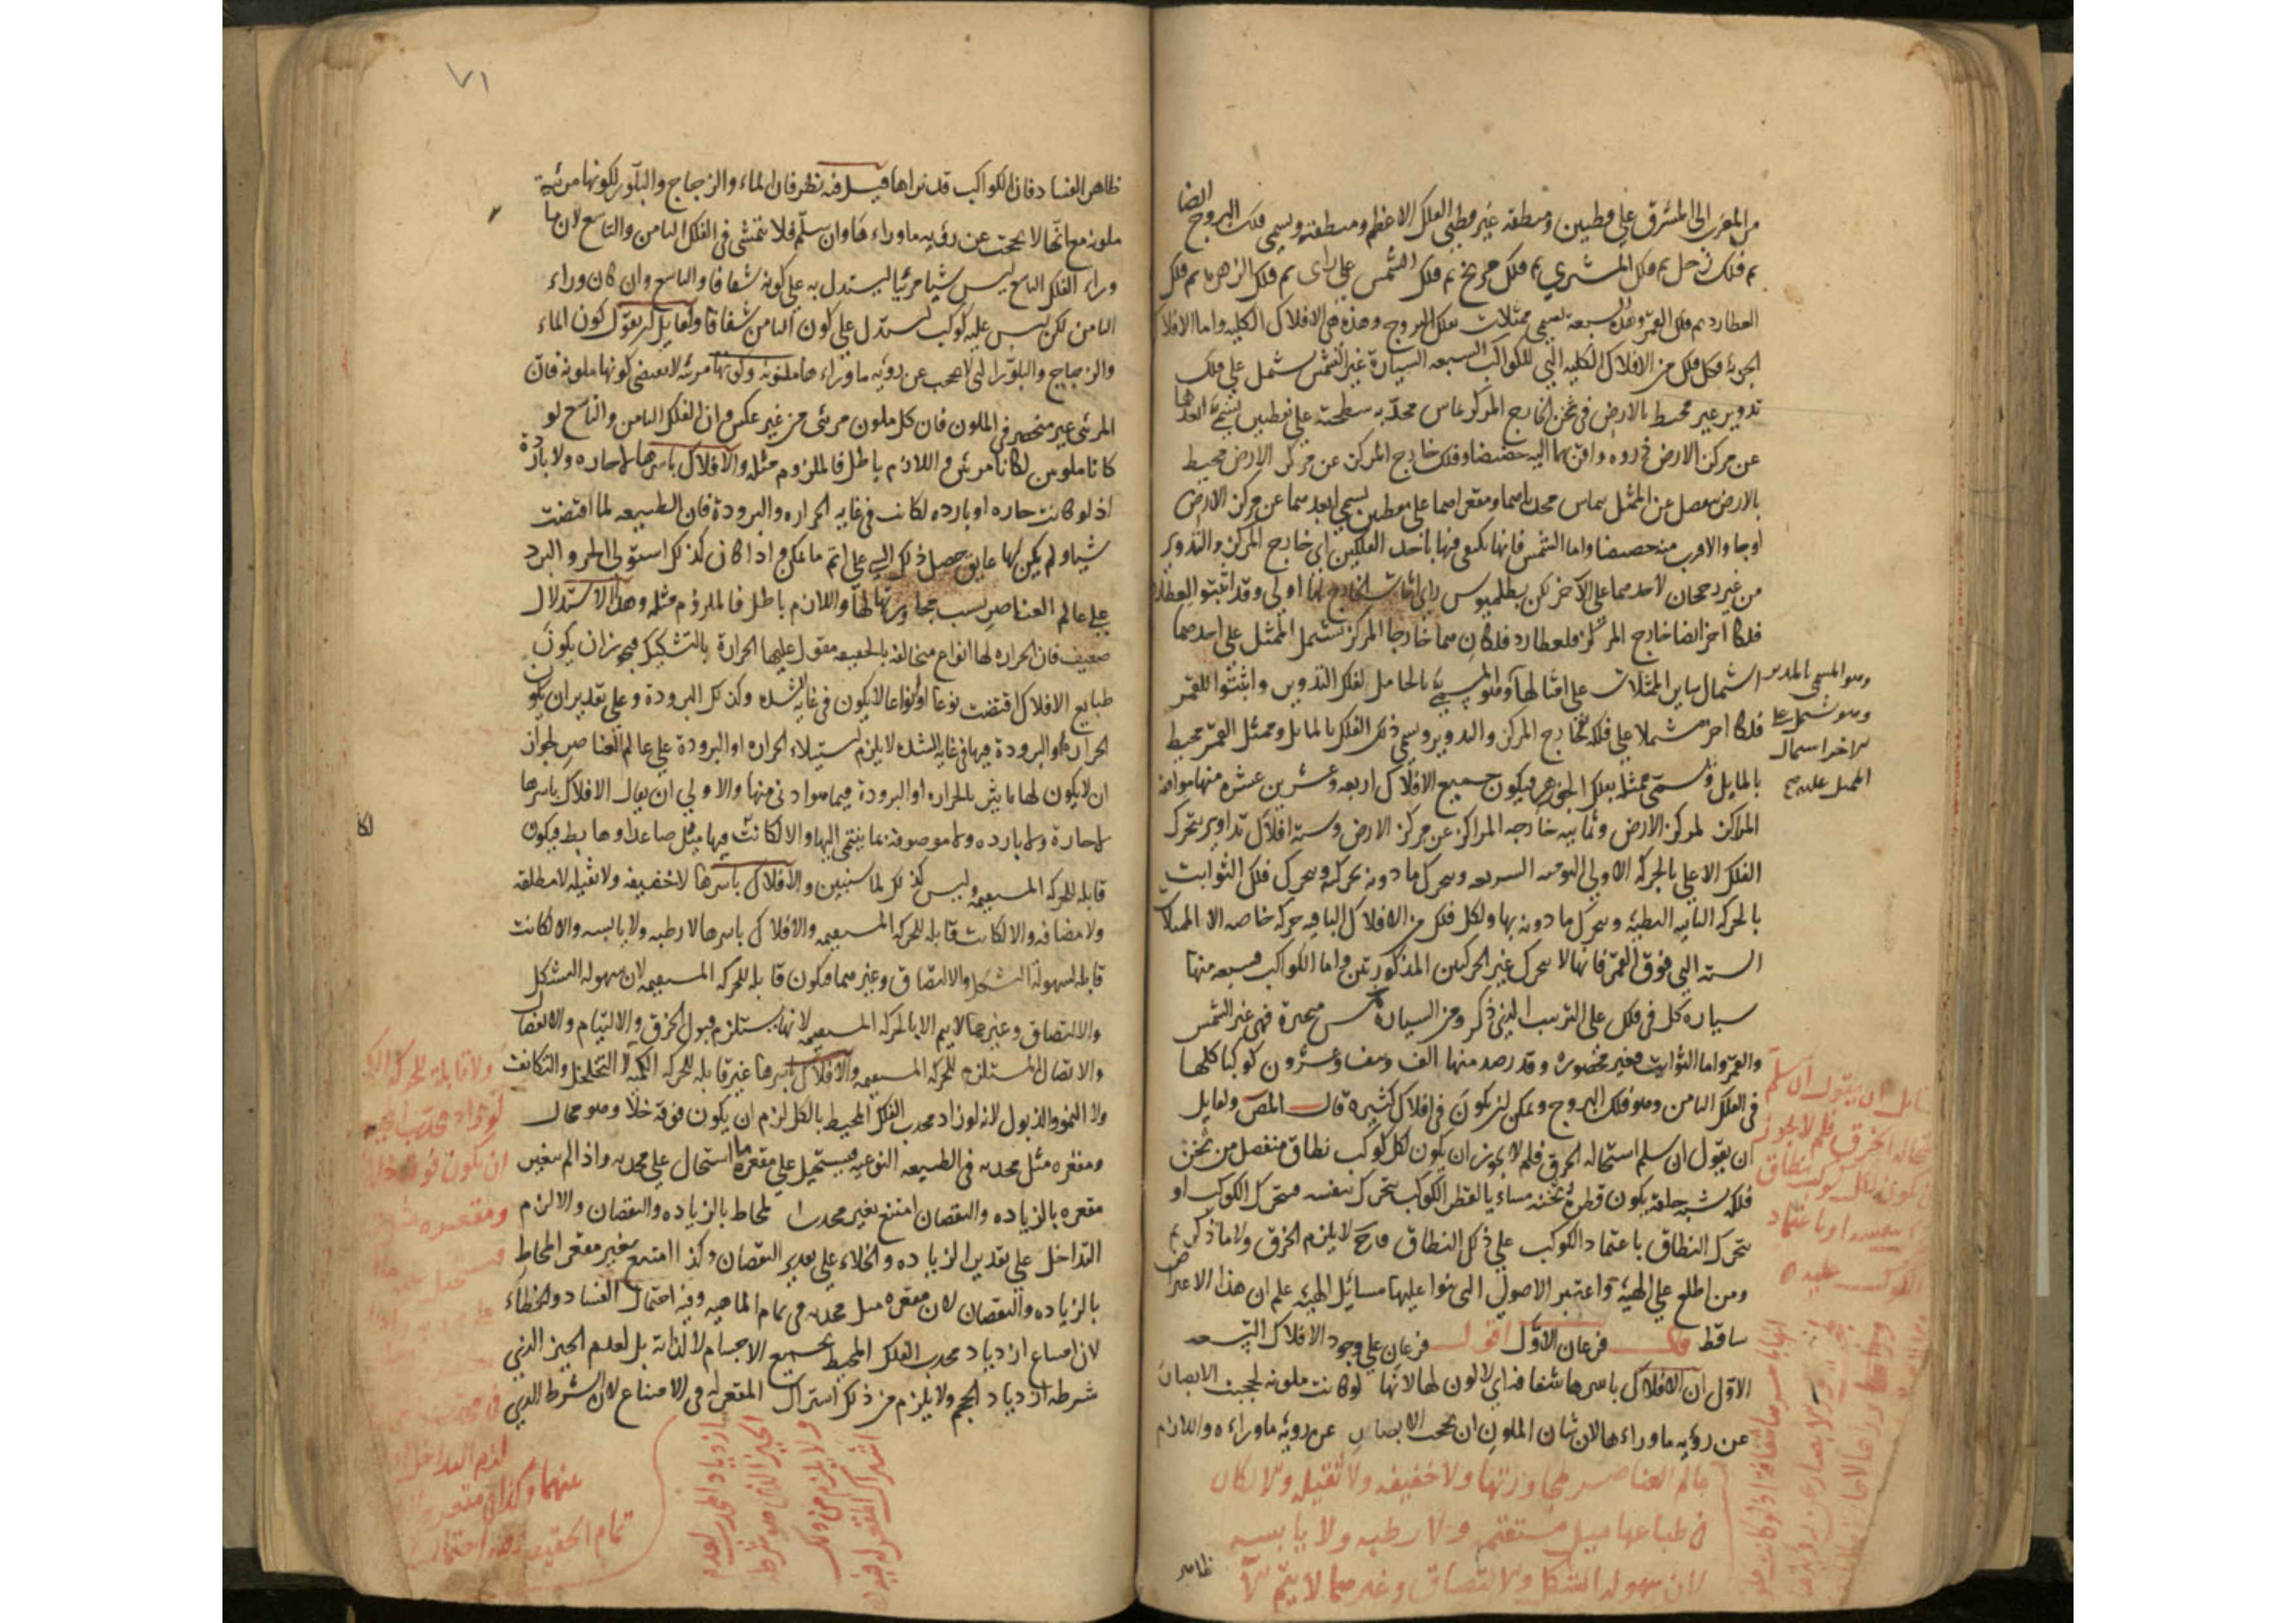 من المغرب الى المشرق على قطبين ومنطقة غير قطبي الفلك الاعظم ومنطقته ويسمى فلك البروج ايضا
ثم فلك زحل ثم فلك المشتري ثم فلك مريخ ثم فلك الشمس على راى ثم فلك الزهرة ثم فلك
العطارد ثم فلك القمر وهذه السبعة تسمى ممثلات بفلك البروج وهذه هي الافلاك الكلية واما الافلاك
الجزئية فكل فلك من الافلاك الكلية التي للكواكب السبعة السيارة غير الشمس يشتمل على فلك
تدوير غير محيط بالارض في ثخن الخارج المركز يماس محدبه سطحيه على نقطتين يسمى ابعدهما
عن مركز الارض ذروة واقربهما اليه حضيضا وفلك خارج المركز عن مركز الارض محيط
بالارض منفصل عن الممثل يماس محدباهما ومقعراهما على نقطتين يسمى ابعدهما عن مركز الارض
اوجا والاقرب منه حضيضا واما الشمس فانها يكتفى فيها باحد الفلكين اى خارج المركز والتدوير
من غير رجحان لاحدهما على الآخر لكن بطلميوس راى اثبات الخارج لها اولى وقد اثبتوا لعطارد
فلكا آخر ايضا خارج المركز فلعطارد فلكان هما خارجا المركز يشتمل الممثل على احدهما
اشتمال ساير الممثلات على امثالها وهو المسمى بالحامل لفلك التدوير واثبتوا للقمر
وهو المسمى بالمدير
وهو يشتمل على
الاخر اشتمال
الممثل عليه صح
فلكا آخر مشتملا على فلكه الخارج المركز والتدوير ويسمى ذلك الفلك بالمايل وممثل القمر محيط
بالمايل ويسمى ممثله بفلك الجوزهر فيكون جميع الافلاك اربعة وعشرين عشرة منها موافقة
المراكز لمركز الارض وثمانية خارجة المراكز عن مركز الارض وستة افلاك تداوير يتحرك
الفلك الاعلى بالحركة الاولى اليومية السريعة ويحرك ما دونه بحركته ويتحرك فلك الثوابت
بالحركة الثانية البطيئة ويحرك ما دونه بها ولكل فلك من الافلاك الباقية حركة خاصة الا الممثلات
الستة التي فوق القمر فانها لا يتحرك غير الحركتين المذكورتين واما الكواكب فسبعة منها
سيارة كل في فلك على الترتيب الذي ذكر ومن السيارة خمس متحيرة فهي غير الشمس
والقمر واما الثوابت فغير محصورة وقد رصد منها الف ونيف وعشرون كوكبا كلها
في الفلك الثامن وهو فلك البروج ويمكن ان يكون في افلاك كثيرة قال المص ولقايل
ان يقول ان سلم استحالة الخرق فلم لا يجوز ان يكون لكل كوكب نطاق منفصل من ثخن
فلكه شبه حلقة يكون قطر ثخنه مساويا لقطر الكوكب يتحرك بنفسه فيتحرك الكوكب او
يتحرك النطاق باعتماد الكوكب على ذلك النطاق وح لا يلزم الخرق ولا ما ذكرتم
ومن اطلع على الهيئة واعتبر الاصول التي بنوا عليها مسائل الهيئة علم ان هذا الاعتراض
ساقط قال فرعان الاول اقول فرعان على وجود الافلاك التسعة
الاول ان الافلاك باسرها شفافة اي لا لون لها لانها لو كانت ملونة لحجبت الابصار
عن رؤية ما وراءها لان شان الملون ان يحجب الابصار عن رؤية ما وراءه واللازم
ظاهر
قايل ان يقول ان سلم
استحالة الخرق فلم لا يجوز
ان يكون لكل كوكب نطاق
بنفسه او باعتماد
الكوكب عليه
عالم العناصر لمجاورتها ولا خفيفة ولا ثقيلة والا لكان
في طباعها ميل مستقيم ولا رطبة ولا يابسة
لان سهولة التشكل والالتصاق وغيرهما لا يتم الا
٧١
ظاهر الفساد فان الكواكب قد نراها قيل فيه نظر فان الماء والزجاج والبلور لكونها مرئية
ملونة مع انها لا يحجب عن رؤية ما وراءها وان سلم فلا يتمشى في الفلك الثامن والتاسع لان ما
وراء الفلك التاسع ليس شيا مرئيا ليستدل به على كونه شفافا والتاسع وان كان وراء
الثامن لكن ليس عليه كوكب ليستدل على كون الثامن شفافا ولقايل ان يقول كون الماء
والزجاج والبلور التي لا يحجب عن رؤية ما وراءها ملونة وكونها مرئية لا يقتضي كونها ملونة فان
المرئي غير منحصر في الملون فان كل ملون مرئي من غير عكس وان الفلك الثامن والتاسع لو
كانا ملونين لكانا مرئيين واللازم باطل فالملزوم مثله والافلاك باسرها لا حارة ولا باردة
اذ لو كانت حارة او باردة لكانت في غاية الحرارة والبرودة فان الطبيعة لما اقتضت
شيا ولم يكن لها عايق حصل ذلك الشي على اتم ما يمكن واذا كان كذلك استولى الحر والبرد
على عالم العناصر بسبب مجاورتها لها واللازم باطل فالملزوم مثله وهذا الاستدلال
ضعيف فان الحرارة لها انواع متخالفة بالحقيقة مقول عليها الحرارة بالتشكيك فيجوز ان يكون
طبايع الافلاك اقتضت نوعا او انواعا لا يكون في غاية الشدة وكذلك البرودة وعلى تقدير ان يكون
الحرارة او البرودة فيها في غاية الشدة لا يلزم استيلاء الحرارة او البرودة على عالم العناصر لجواز
ان لا يكون لها تاثير بالحرارة او البرودة فيما هو ادنى منها والاولى ان يقال الافلاك باسرها
لا حارة ولا باردة ولا موصوفة بما ينتمي اليها والا لكانت فيها ميل صاعد او هابط فيكون
قابلة للحركة المستقيمة وليس كذلك لما سنبين والافلاك باسرها لا خفيفة ولا ثقيلة لا مطلقة
ولا مضافة والا لكانت قابلة للحركة المستقيمة والافلاك باسرها لا رطبة ولا يابسة والا لكانت
قابلة لسهولة التشكل والالتصاق وغيرهما فيكون قابلة للحركة المستقيمة لان سهولة التشكل
والالتصاق وغيرها لا يتم الا بالحركة المستقيمة لانها يستلزم قبول الخرق والالتيام والانفصال
والاتصال المستلزم للحركة المستقيمة والافلاك باسرها غير قابلة للحركة الكمية لا التخلخل والتكاثف
ولا النمو والذبول لانه لو زاد محدب الفلك المحيط بالكل لزم ان يكون فوقه خلا وهو محال
ومقعره مثل محدبه في الطبيعة النوعية فيستحيل على مقعره ما استحال على محدبه واذا لم يتغير
مقعره بالزيادة والنقصان امتنع تغير محدب المحاط بالزيادة والنقصان والا لزم
التداخل على تقدير الزيادة والخلاء على تقدير النقصان وكذا امتنع تغير مقعر المحاط
بالزيادة والنقصان لان مقعره مثل محدبه في تمام الماهية وفيه احتمال الفساد والخطاء
لان امتناع ازدياد محدب الفلك المحيط بجميع الاجسام لا لذاته بل لعدم الحيز الذي
شرطه ازدياد الحجم ولا يلزم من ذلك اشتراك المقعر له في الامتناع لان الشرط الذي
ولا قابلة للحركة
لو زاد محدب
ان يكون فوقه خلا
ومقعره
لزم التداخل
عنهما وكذا مقعر
تمام الحقيقة وفيه احتمال
ازدياد المحدب لعدم
الحيز الذي هو شرطه
ولا يلزم من ذلك
اشتراك المقعر له فيه